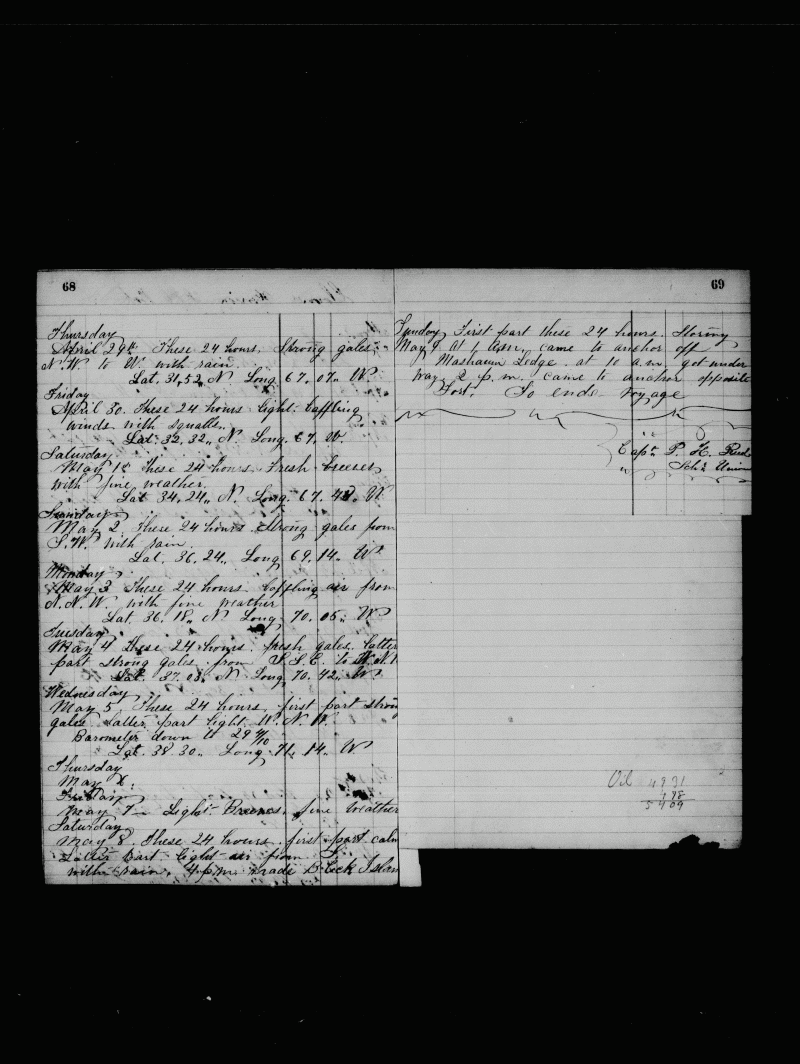 68
Thursday
April 29th These 24 hours. Strong gales,
N.W. to W. with rain
Lat. 31,52 N Long 67.07" W
Friday
April 30. These 24 hours light baffling
winds with squalls.
Lat. 32,32" N Long. 67. W.
Saturday
May 1st These 24 hours. Fresh breezes
with fine weather.
Lat 34,24" N. Long. 67. 48. W
Sunday
May 2 These 24 hours. Strong gales from
S.W. with rain.
Lat. 36.24" Long 69.14" W
Monday
May 3 These 24 hours. baffling air from
N.N.W. with fine weather
Lat. 36.18" N Long 70.06" W
Tuesday
May 4 These 24 hours fresh gales. latter
part strong gales. from S.S.E. to
Lat. 37.08" N Long 70.42" W
Wednesday
May 5 These 24 hours, first part strong
gales latter part light W.N.W.
Barometer down to 29 4/10
Lat. 38.30" Long 71. 14" W
Thursday
May 6.
Friday
May 7" Light Breezes, fine weather
Saturday
May 8. These 24 hours. first part calm
Latter Part light air from S.
with rain. 4 p.m. made Block Islan
69
Sunday First part these 24 hours. Stormy
May 9 at 1 a.m. came to anchor off
Mashaum Ledge. at 10 a.m. got under
way 2 p.m. came to anchor opposite
Fort. So ends Voyage
Capt. P. H.
Schr Union
Oil 4931
198
5409